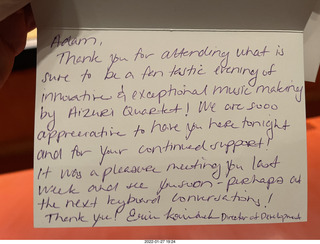 Adam,
Thank you for attending what is
sure to be a fan tastic evening of
innovative & exceptional music making
by Aizuri Quartet! We are sooo
appreciative to have you here tonight
and for your continued support!
It was a pleasure meeting you last
week and see you soon - perhaps at
the next keyboard conversations!
Thank you! Director of Development
2022-01-27 19:24